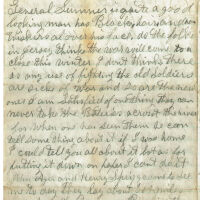 General Sumner is quite a good
looking man has Black hair and
whiskers al over his face. do the folks
in Jersey think the war will come to a
close this winter. I dont think there
is any use of fighting the old soldiers
are sicks of war and so are the new
ones I am satisfied of one thing they can
never take the Batteries across the river
for when one has seen them he can
tell some thing about it if I was home
I could tell you all about it but as for
putting it down on paper I cant do it
and Henry came to see
me to day they has about miles